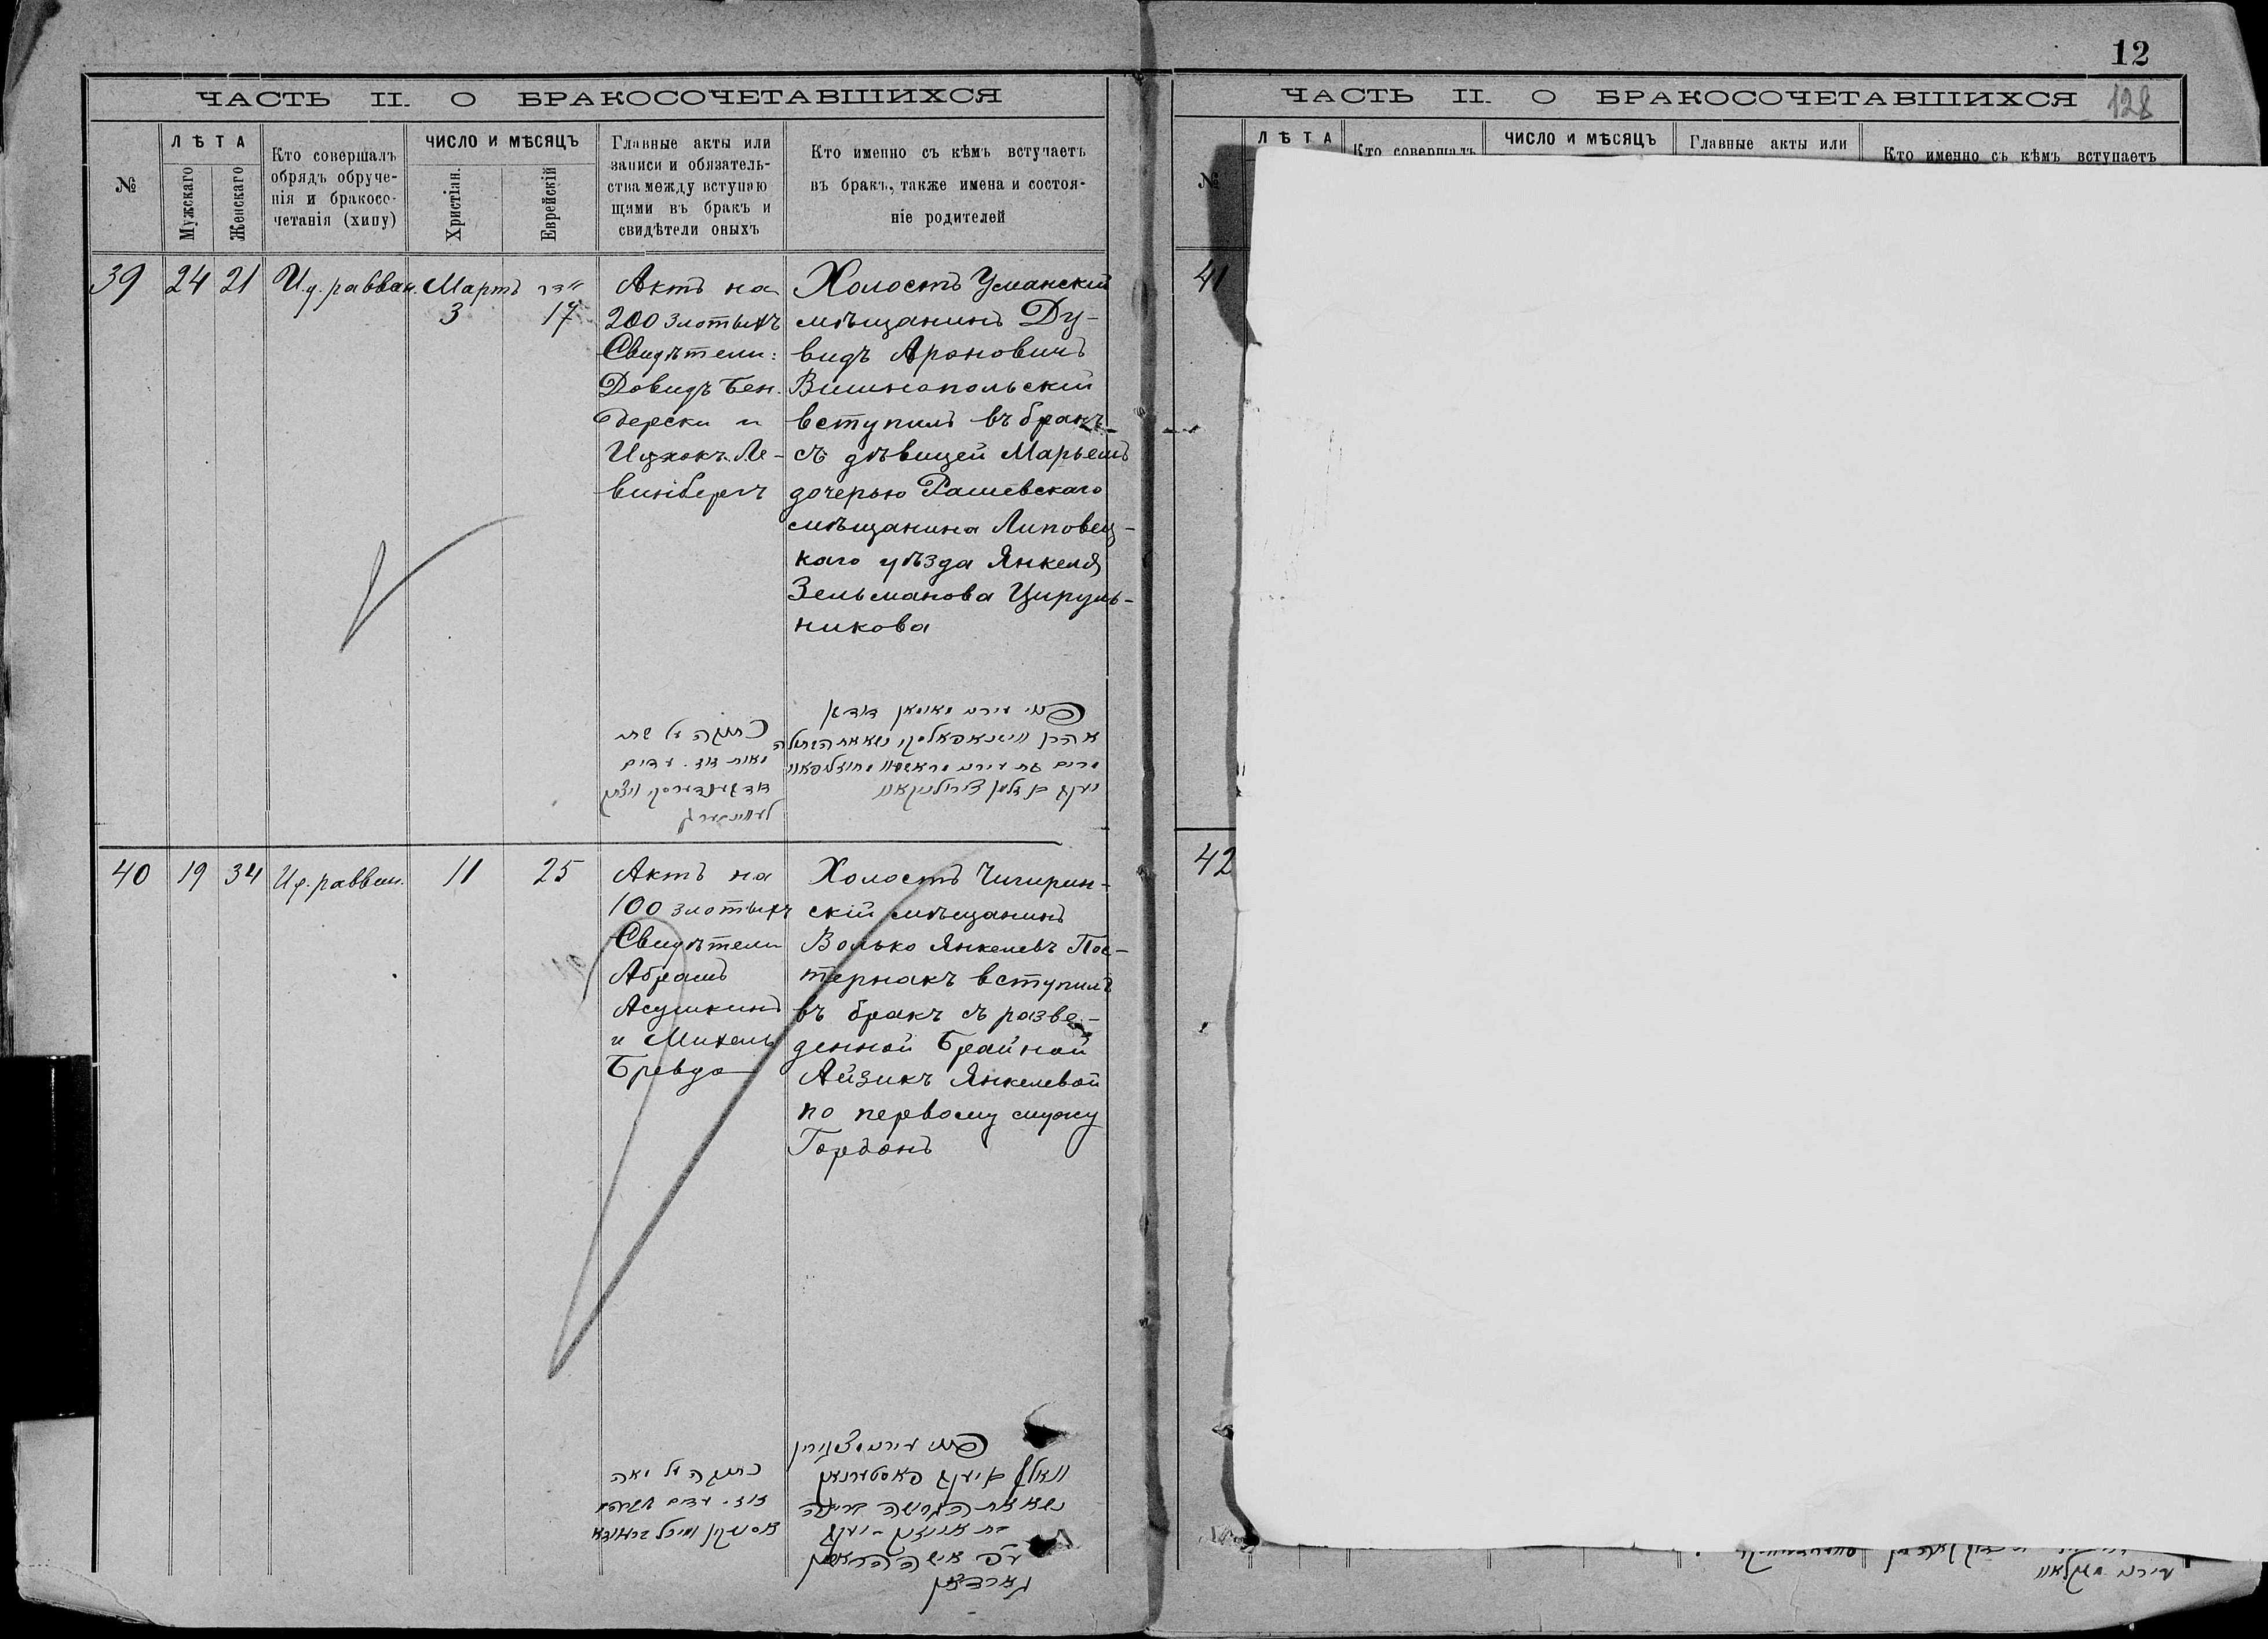 ЧАСТЬ II. О БРАКОСОЧЕТАВШИХСЯ
№
ЛѢТА
Мужскаго
Женскаго
Кто совершалъ
обрядъ обруче-
нія и бракосо-
четанія (хипу)
ЧИСЛО И МѢСЯЦЪ
Христіан.
Еврейскій
Главные акты или
записи и обязатель-
ства между вступаю
щими въ бракъ и
свидѣтели оныхъ
Кто именно съ кѣмъ вступаетъ
въ бракъ, также имена и состоя-
ніе родителей
39
24
21
И.д. раввин.
Мартъ
3
אדר
17
Актъ на
200 злотыхъ
Свидѣтели:
Довидъ Бен-
дерски и
Ицхокъ Ле-
винбергъ
Холостъ Уманскій
мѣщанинъ Ду-
видъ Ароновичъ
Вишнопольскій
вступилъ въ бракъ
съ дѣвицей Марьемъ
дочерью Рашевскаго
мѣщанина Липовец-
каго уѣзда Янкеля
Зельманова Цируль-
никова
כתובה על
אהרן ווישנאפאלסקי נשא את הבתולה
יעקב בן זלמן צירולניקאוו
40
19
34
И.д. раввин.
11
25
Актъ на
100 злотыхъ
Свидѣтели
Абрамъ
Асушкинъ
и Михель
Бревда
Холостъ Чигирин-
скій мѣщанинъ
Волько Янкелевъ Пос-
тернакъ вступилъ
въ бракъ съ разве-
денной Брайной
Айзикъ Янкелевой
по первому мужу
Гордонъ
כתובה על מאה
וואלף בן יעקב פאסטערנאק
נשא את הגרושה בריינה
גארדאן
12
128
ЧАСТЬ II. О БРАКОСОЧЕТАВШИХСЯ
№
ЛѢТА
Кто совершалъ
ЧИСЛО И МѢСЯЦЪ
Главные акты или
Кто именно съ кѣмъ вступаетъ
41
42